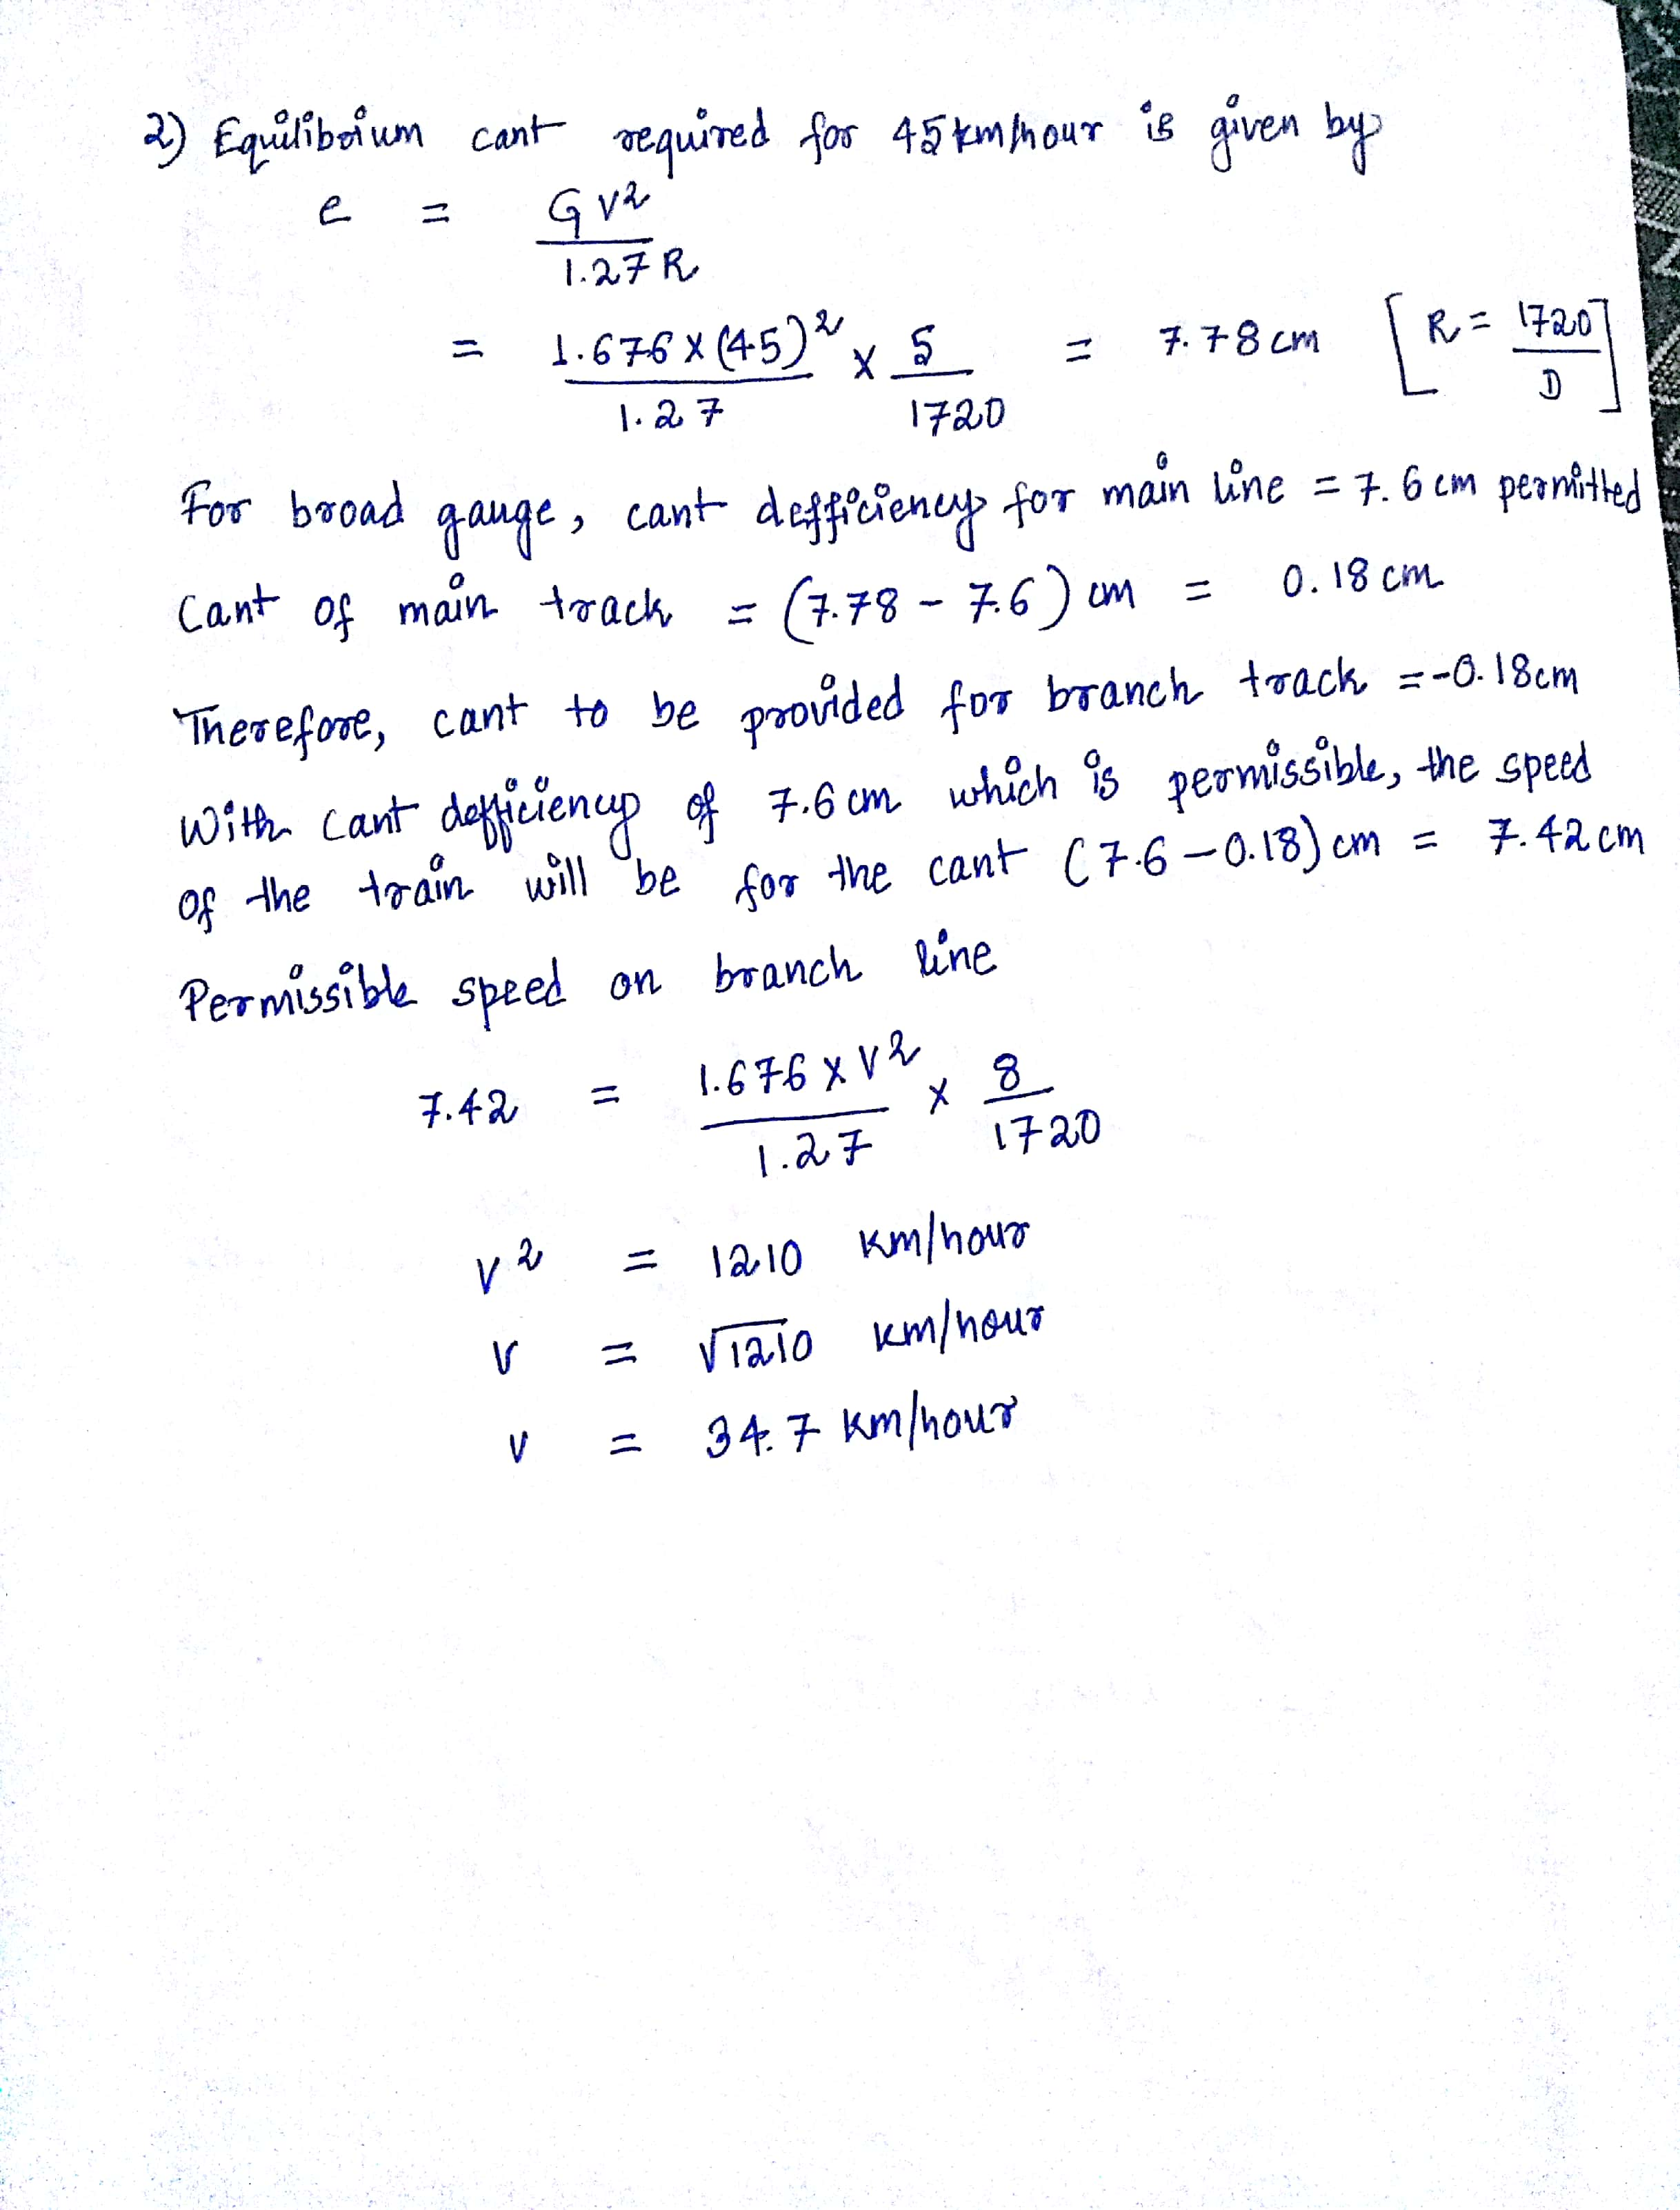 2) Equilibrium cant required for 45 km/hour is given by
e = GV²
1.27 R
= 1.676 x (45)² x 5 = 7.78 cm [R = 1720]
1.27 1720 D
For broad gauge, cant defficiency for main line = 7.6 cm permitted
Cant of main track = (7.78 - 7.6) cm = 0.18 cm
Therefore, cant to be provided for branch track = -0.18cm
With cant defficiency of 7.6 cm which is permissible, the speed
of the train will be for the cant (7.6 - 0.18) cm = 7.42 cm
Permissible speed on branch line
7.42 = 1.676 x V² x 8
1.27 1720
V² = 1210 km/hour
V = √1210 km/hour
V = 34.7 km/hour